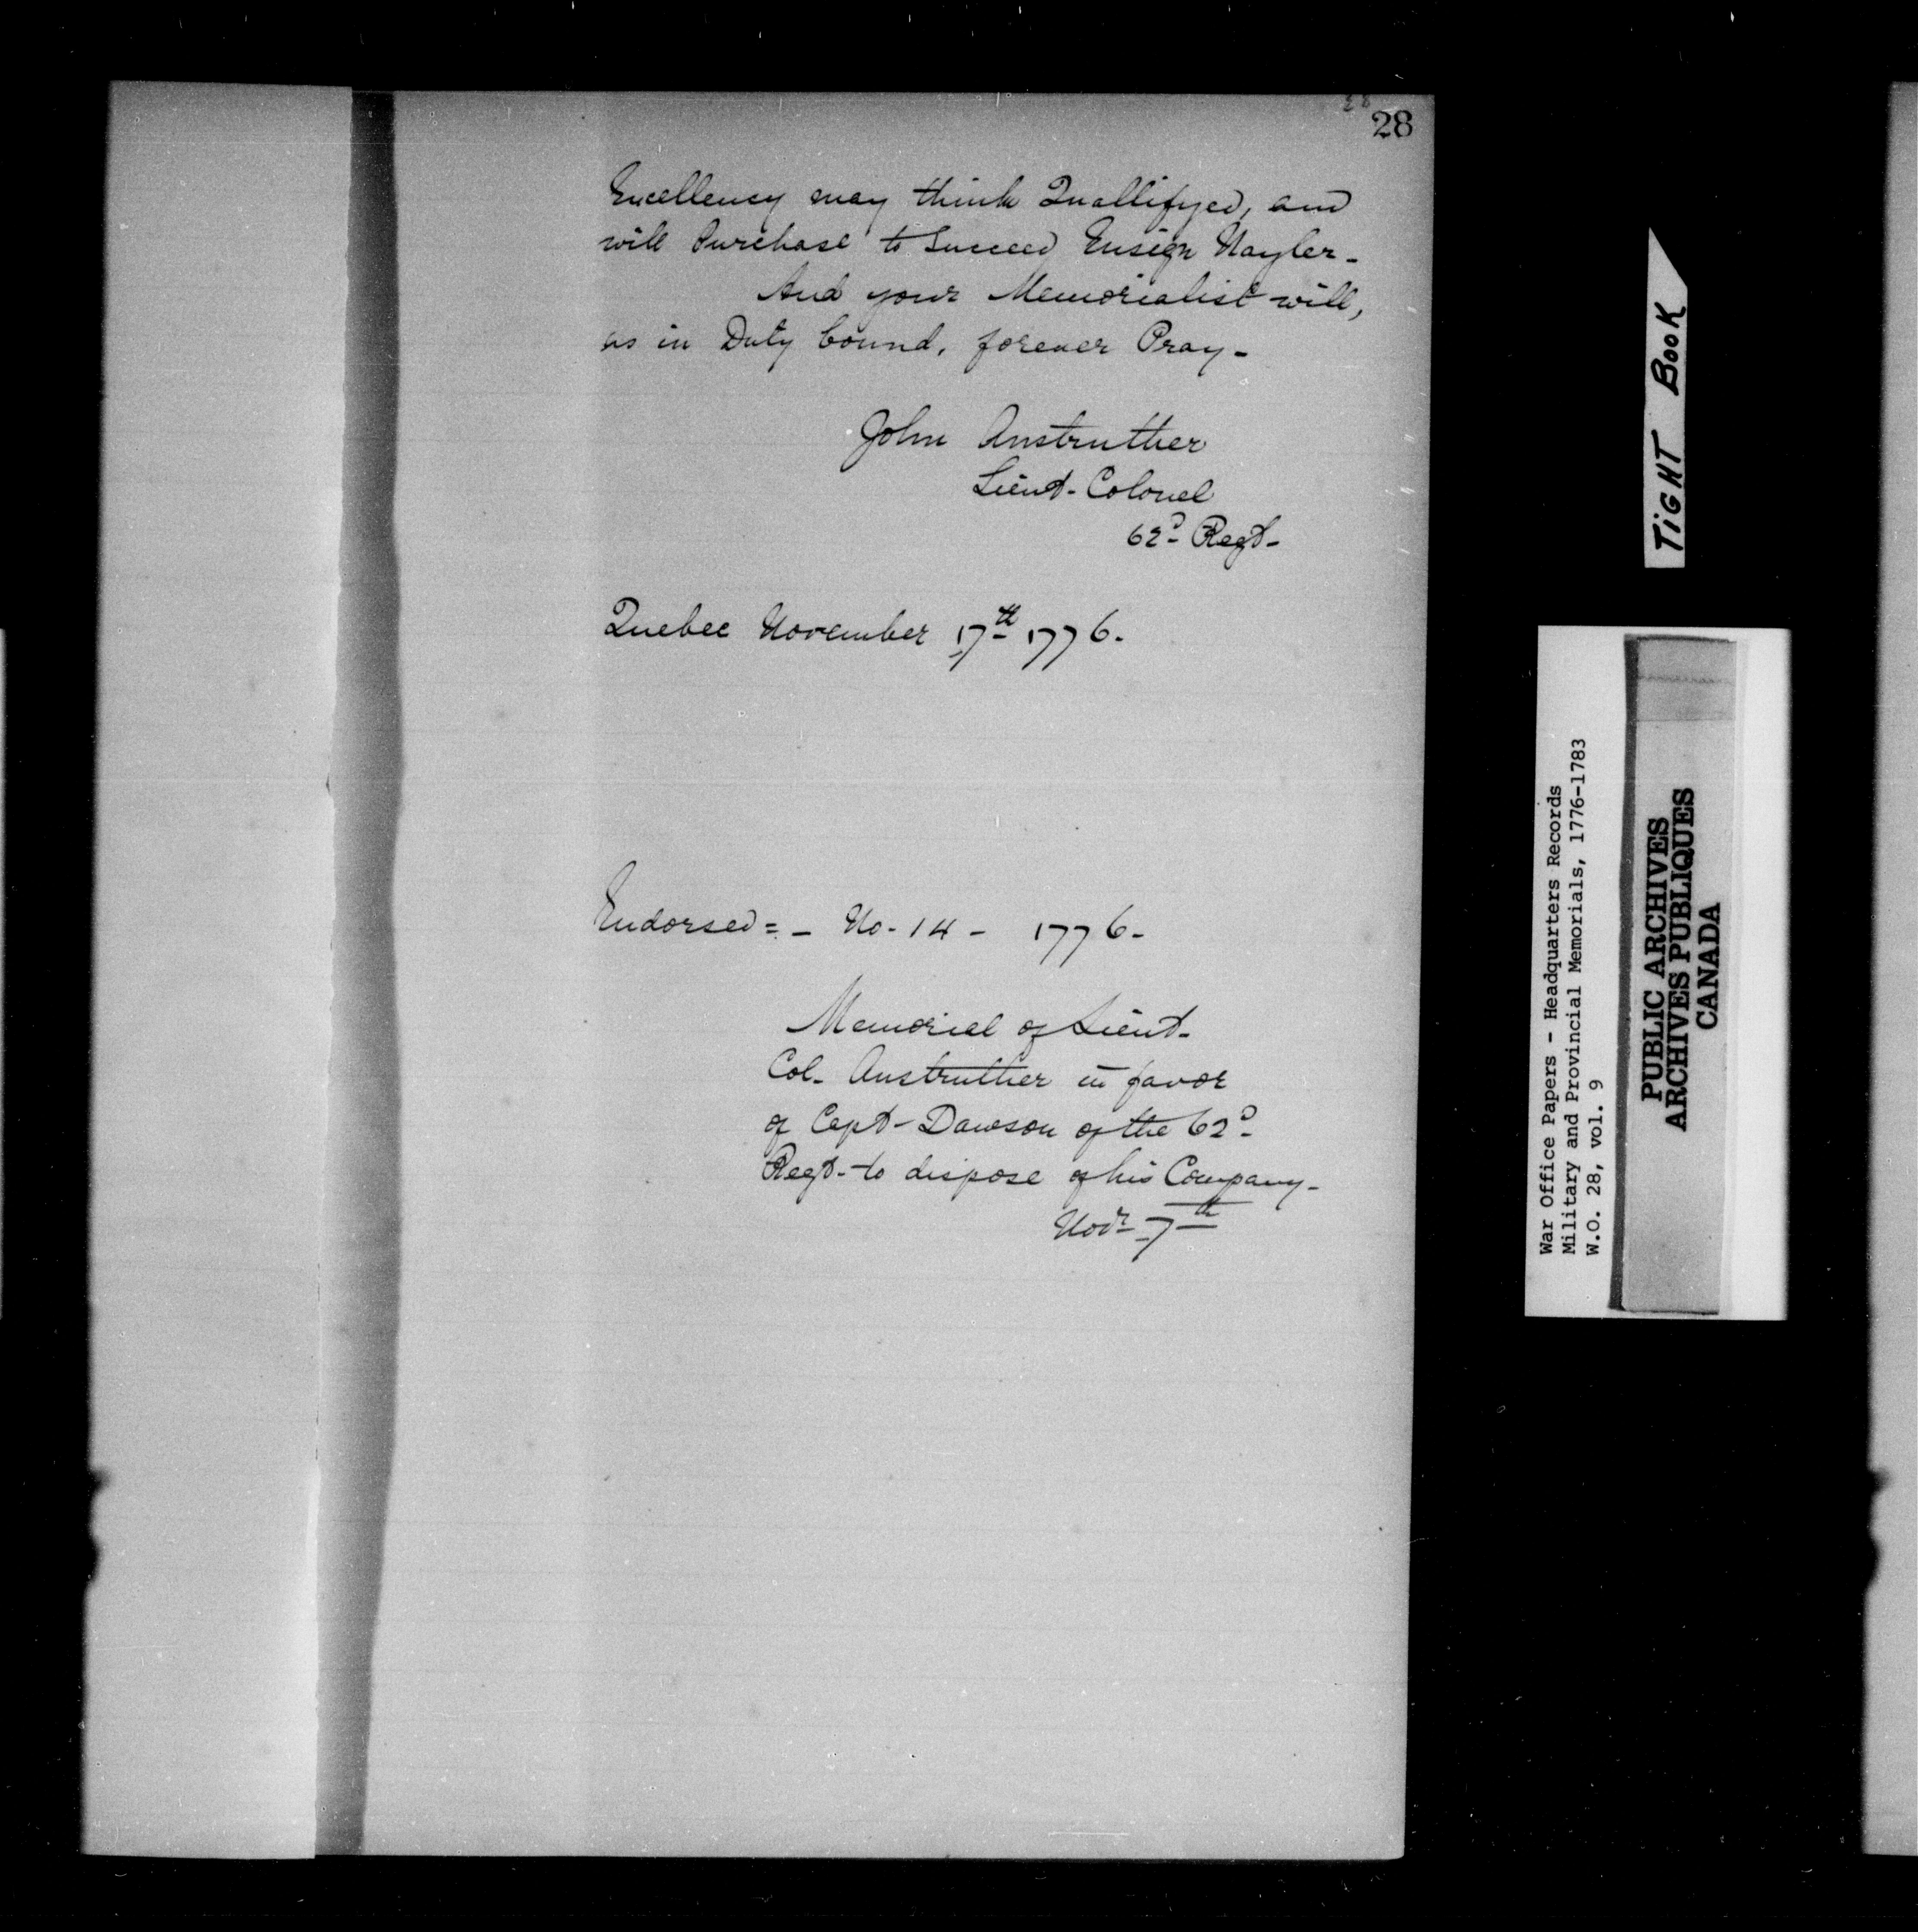 28
Excellency may think Quallifyed, and
will Purchase to Succeed Ensign Nayler -
And your Memorialist will,
as in Duty bound, forever Pray -
John Anstruther
Lieut - Colonel
62d Regt -
Quebec November 17th 1776 -
Endorsed = - No - 14 - 1776 -
Memorial of Lieut -
Col - Anstruther in favor
of Capt - Dawson of the 62d -
Regt - to dispose of his Company -
Novr 7th
TIGHT BOOK
War Office Papers - Headquarters Records
Military and Provincial Memorials, 1776-1783
W.O. 28, vol. 9
PUBLIC ARCHIVES
ARCHIVES PUBLIQUES
CANADA